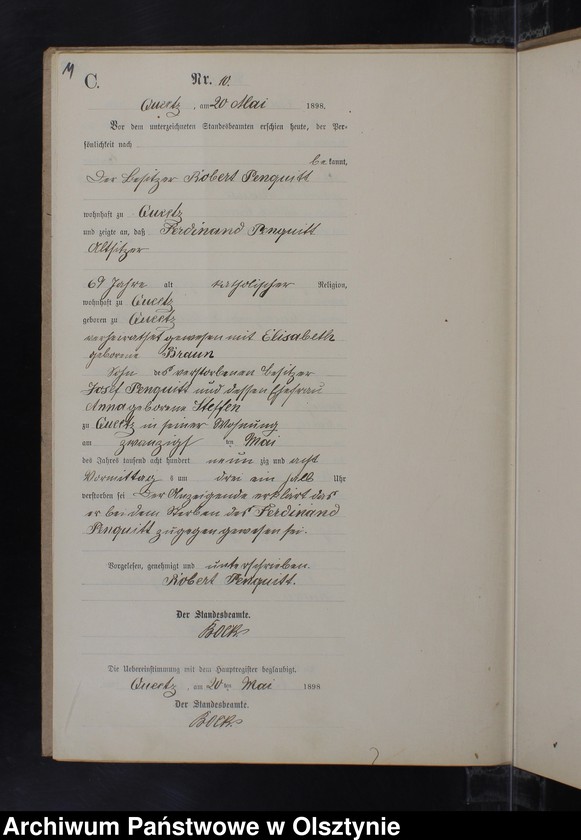 C.
Nr. 10.
Quertz, am 20 Mai 1898.
Vor dem unterzeichneten Standesbeamten erschien heute, der Per-
sönlichkeit nach
be kannt,
Der Besitzer Robert Penquitt
wohnhaft zu Quertz
und zeigte an, daß Ferdinand Penquitt
Altsitzer
69 Jahre alt katholischer Religion,
wohnhaft zu Quertz
geboren zu Quertz
verheirathet gewesen mit Elisabeth
geborene Braun
Sohn des verstorbenen Besitzer
Josef Penquitt und dessen Ehefrau
Anna geborene Steffen
zu Quertz in seiner Wohnung
am zwanzigsten Mai
des Jahres tausend acht hundert neunzig und acht
Vormittags um drei ein halb Uhr
verstorben sei Der Anzeigende erklärt das
er bei dem Sterben des Ferdinand
Penquitt zugegen gewesen sei.
Vorgelesen, genehmigt und unterschrieben.
Robert Penquitt.
Der Standesbeamte.
Bock
Die Uebereinstimmung mit dem Hauptregister beglaubigt.
Quertz, am 20 ten Mai 1898
Der Standesbeamte.
Bock
Archiwum Państwowe w Olsztynie